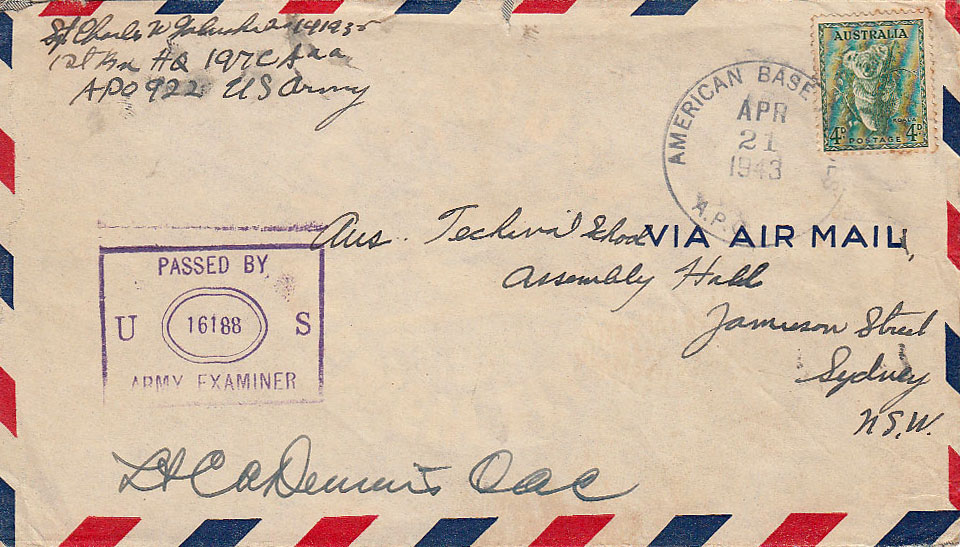 Sgt Charles W
1st Bn HQ 197 CA AAA
APO 922 US Army
AMERICAN BASE
APR
21
1943
A.P.
AUSTRALIA
KOALA
4D POSTAGE 4D
Aus. Technical School
VIA AIR MAIL
Assembly Hall
Jamieson Street
Sydney
N.S.W.
PASSED BY
U 16188 S
ARMY EXAMINER
Lt C A Dennis